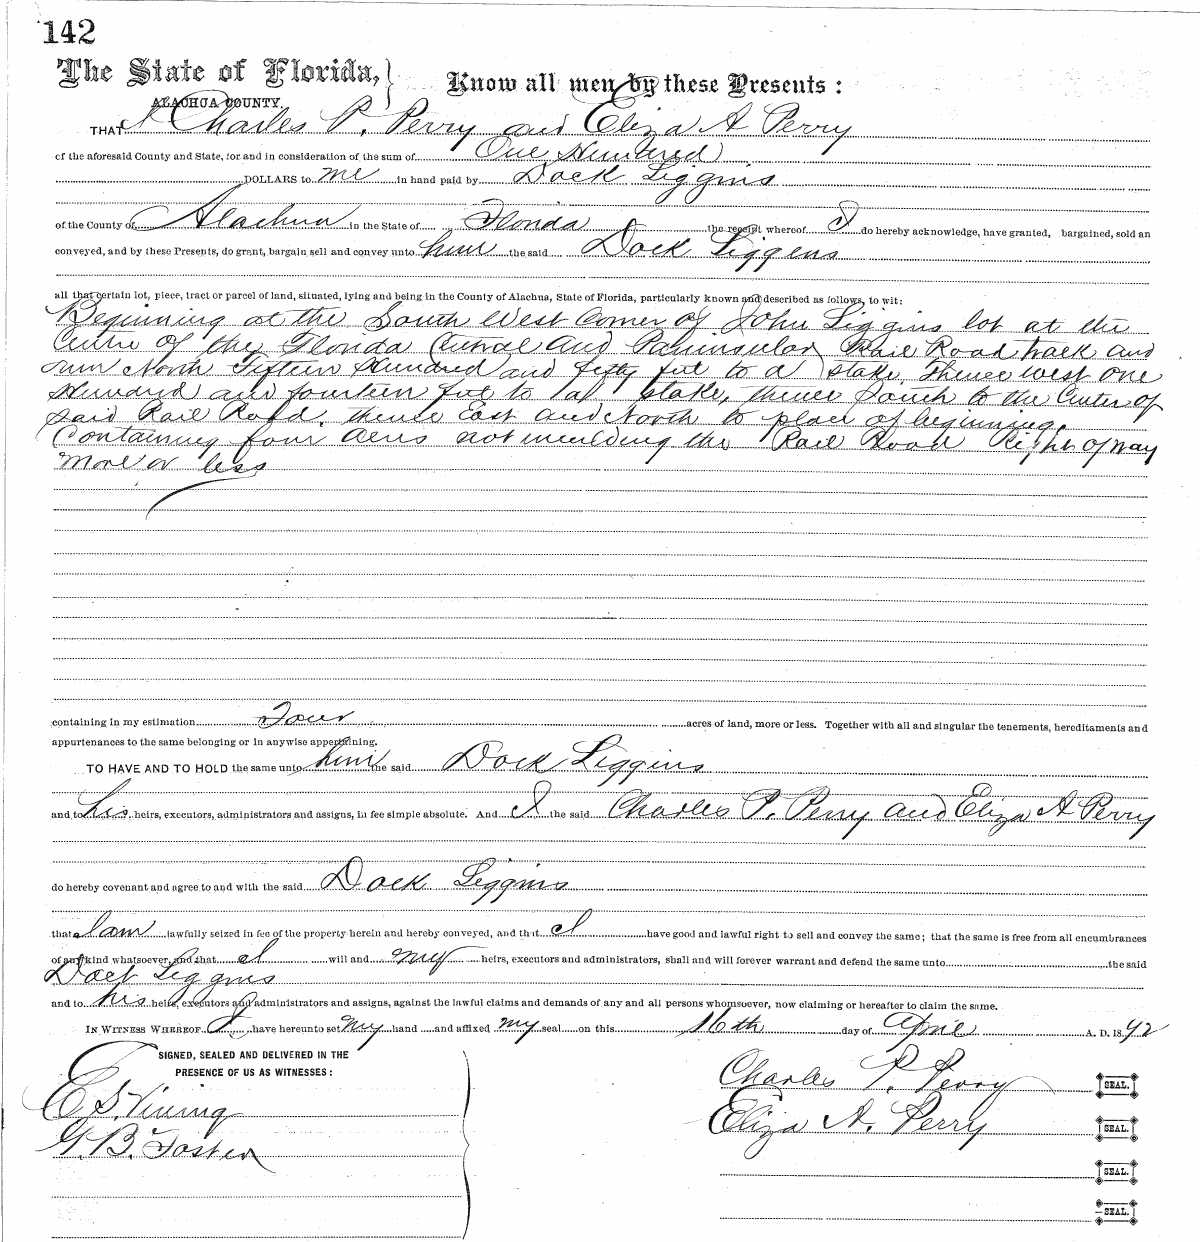 142
The State of Florida,
Know all men by these Presents:
ALACHUA COUNTY.
THAT I Charles P. Perry and Eliza A Perry
of the aforesaid County and State, for and in consideration of the sum of One Hundred
DOLLARS to me in hand paid by Dock Liggins
of the County of Alachua in the State of Florida the receipt whereof I do hereby acknowledge, have granted, bargained, sold an
conveyed, and by these Presents, do grant, bargain sell and convey unto him the said Dock Liggins
all that certain lot, piece, tract or parcel of land, situated, lying and being in the County of Alachua, State of Florida, particularly known and described as follows, to wit:
Beginning at the South West Corner of John Liggins lot at the
Centre of the Florida Central and Paninsular Rail Road track and
run North Fifteen Hundred and fifty feet to a stake, thence west one
Hundred and fourteen feet to a stake, thence South to the Center of
said Rail Road, thence East and North to place of beginning.
Containing four Acres not including the Rail Road Right of way
more or less
containing in my estimation Four acres of land, more or less. Together with all and singular the tenements, hereditaments and
appurtenances to the same belonging or in anywise appertaining.
TO HAVE AND TO HOLD the same unto him the said Dock Liggins
and to his heirs, executors, administrators and assigns, in fee simple absolute. And I the said Charles P. Perry and Eliza A Perry
do hereby covenant and agree to and with the said Dock Liggins
that I am lawfully seized in fee of the property herein and hereby conveyed, and that I have good and lawful right to sell and convey the same; that the same is free from all encumbrances
of any kind whatsoever, and that I will and my heirs, executors and administrators, shall and will forever warrant and defend the same unto the said
Dock Liggins
and to his heirs, executors and administrators and assigns, against the lawful claims and demands of any and all persons whomsoever, now claiming or hereafter to claim the same.
IN WITNESS WHEREOF I have hereunto set my hand and affixed my seal on this 16th day of April A. D. 1892
SIGNED, SEALED AND DELIVERED IN THE
PRESENCE OF US AS WITNESSES:
Charles P. Perry SEAL.
E S. Vining
Eliza A. Perry SEAL.
G. B. Foster
SEAL.
SEAL.